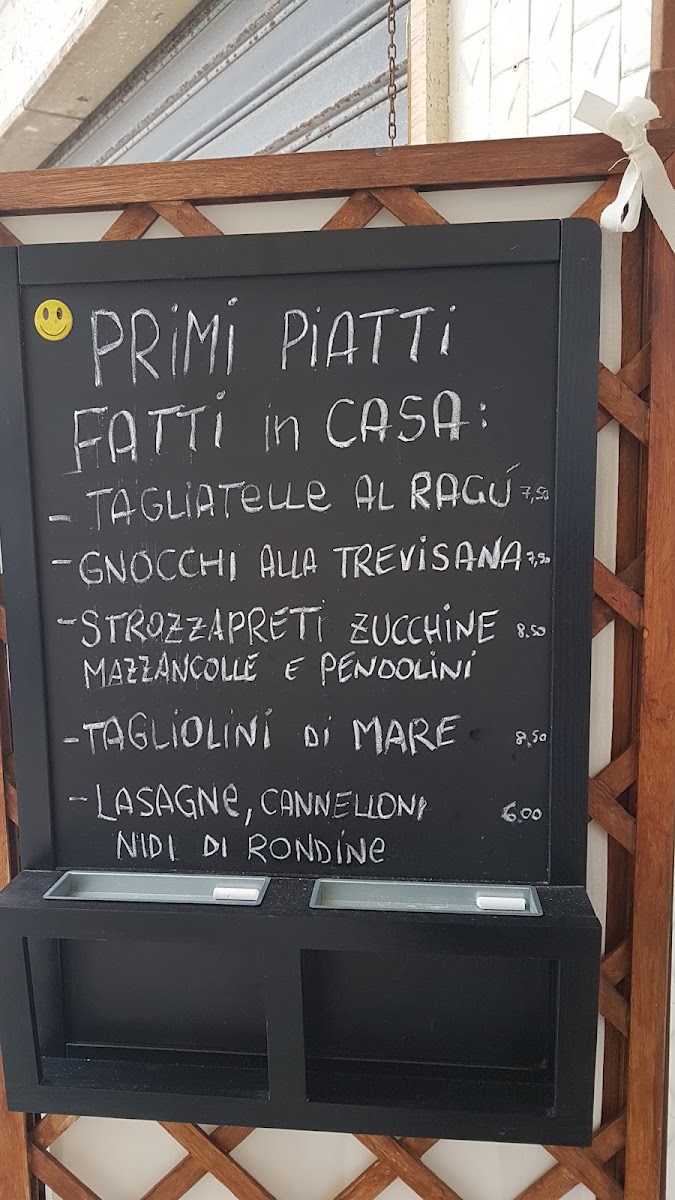 PRiMi PiATTi
FATTi in CASA:
- TAGLiATeLLe AL RAGÚ 7,50
- GNOCCHi ALLA TREViSANA 7,50
- STROZZAPRETi ZUCCHiNE 8.50
MAZZANCOLLE E PENDOLiNi
- TAGLiOLiNi Di MARE 8,50
- LASAGNe, CANNELLONi 6.00
NIDI DI RONDiNe